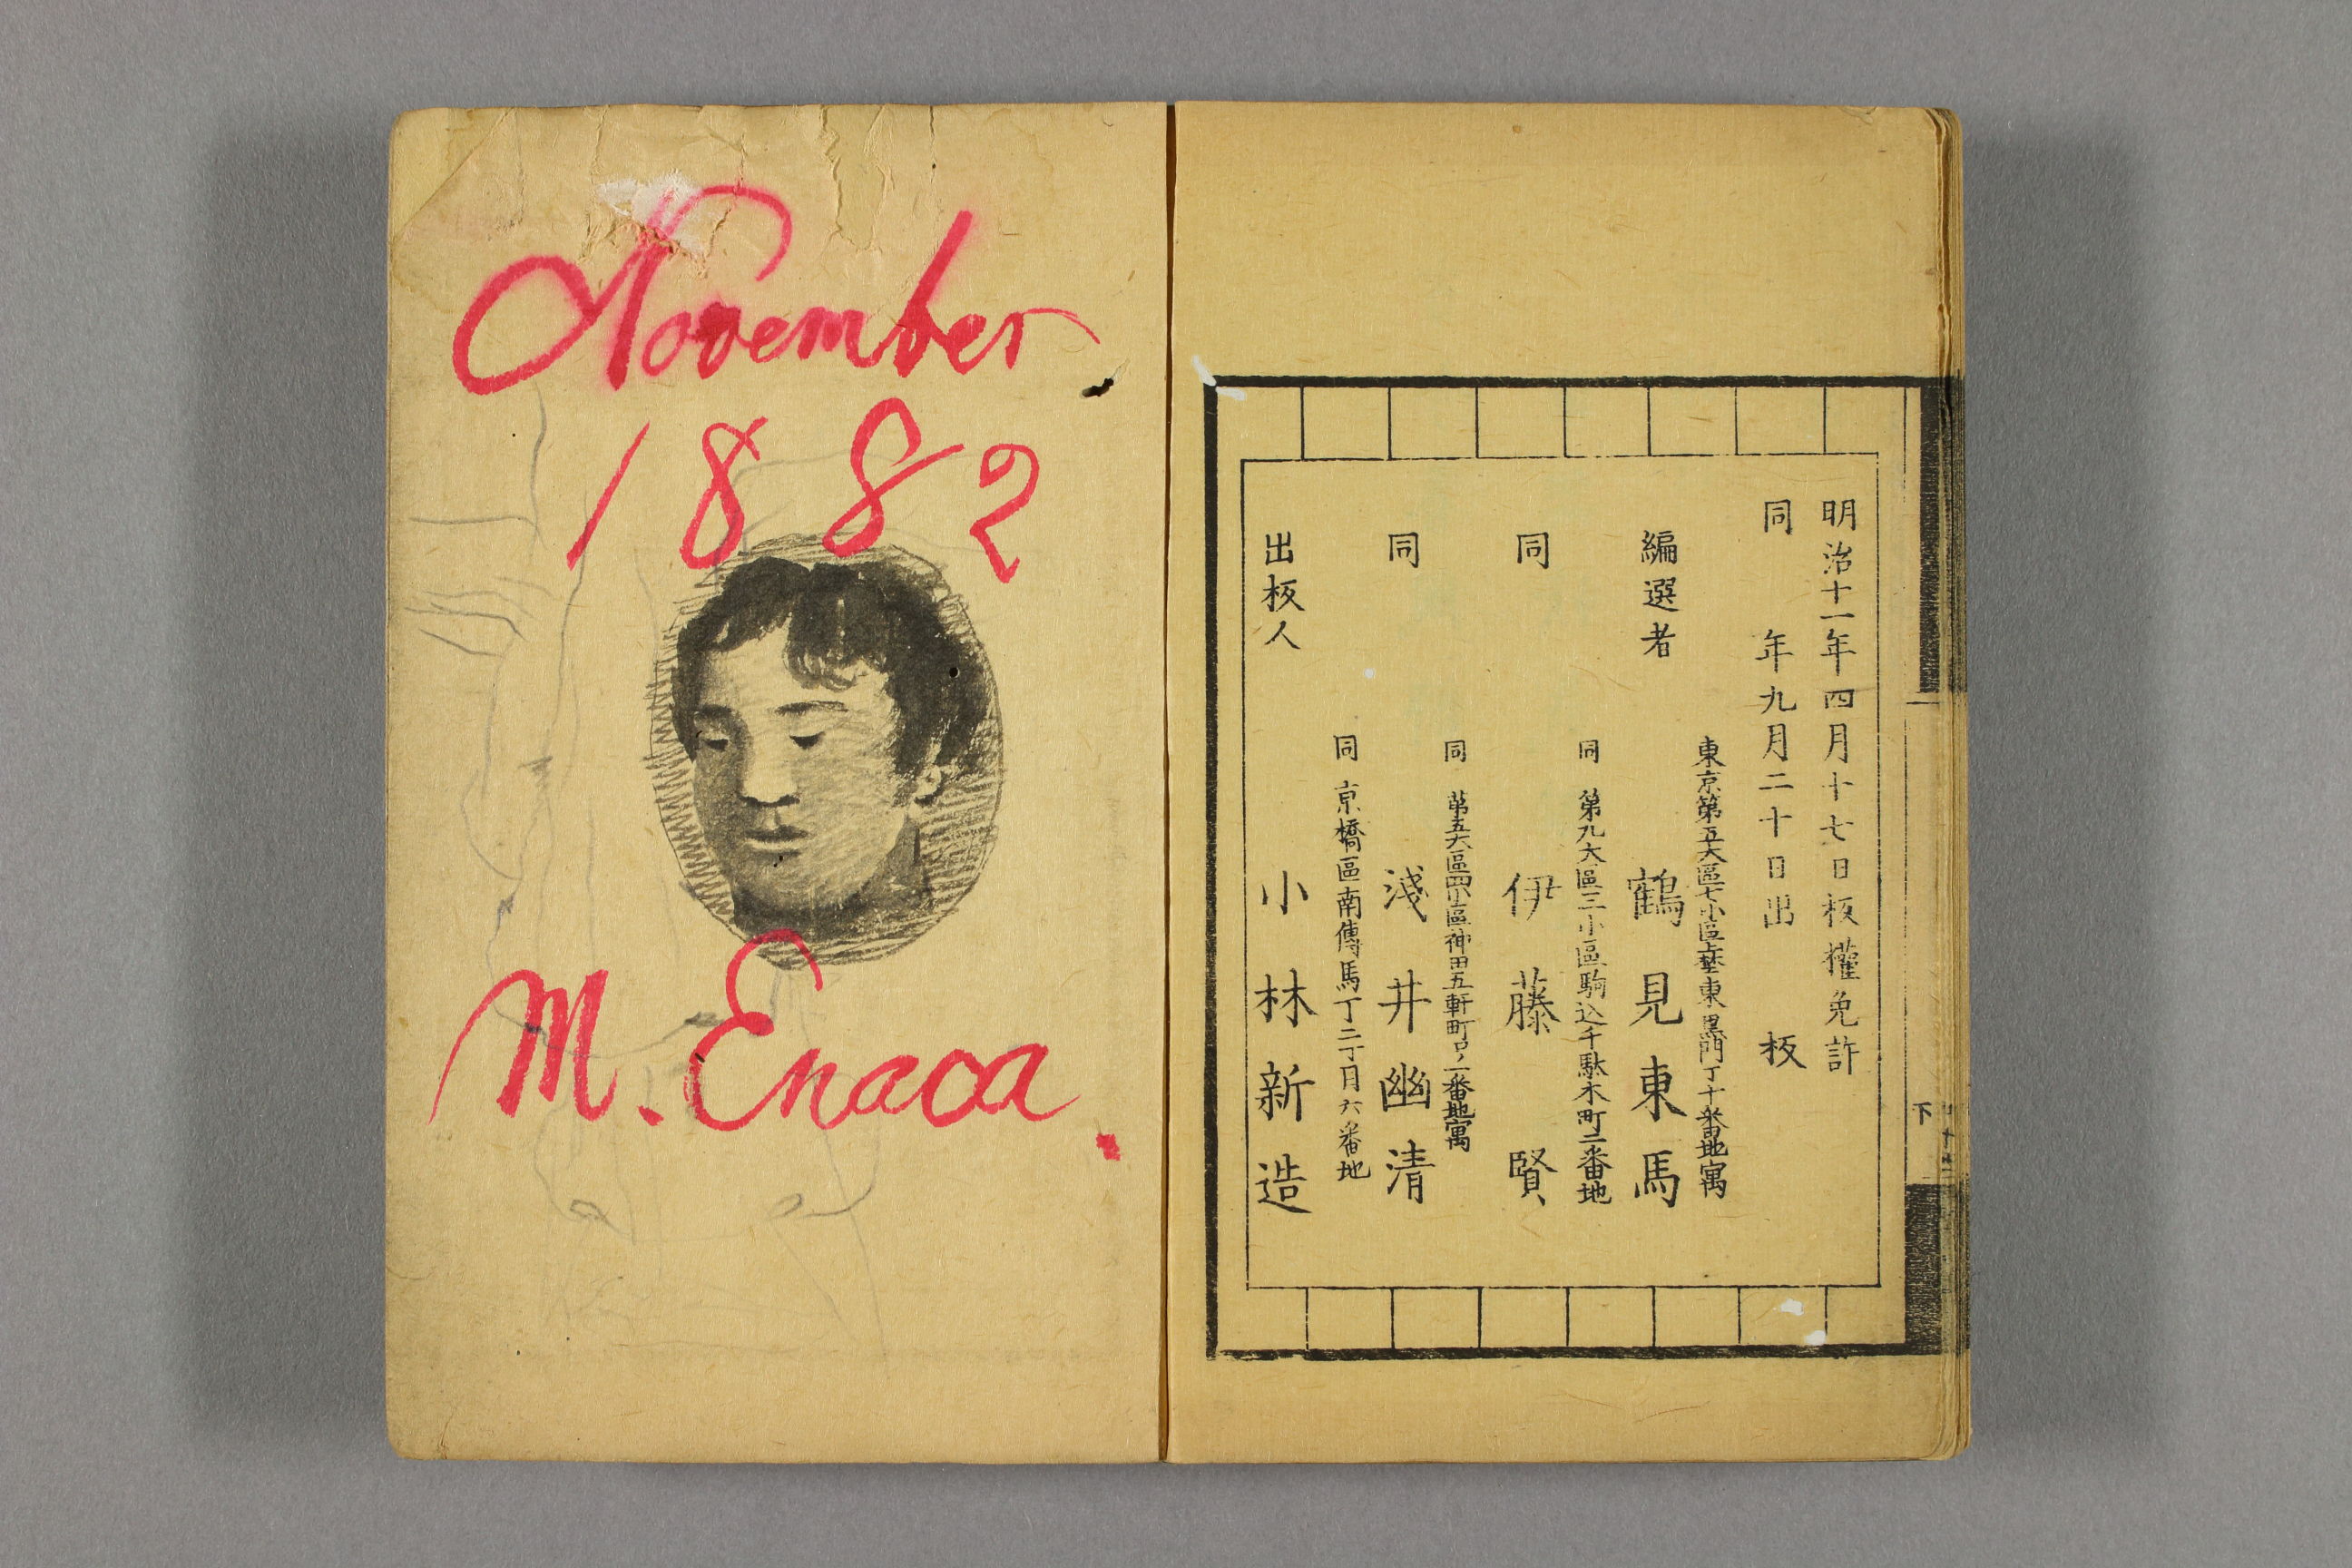 明治十一年四月十七日板權免許
同年九月二十日出板
東京第五大區七小區上野東黒門丁十番地寓
編選者 鶴見東馬
同 第九大區三小區駒込千駄木町二番地
同 伊藤賢
同 第五大區四小區神田五軒町口ノ二番地寓
同 淺井幽清
同 京橋區南傳馬丁二丁月六番地
出板人 小林新造
下
November
1882
M. Enaoa.